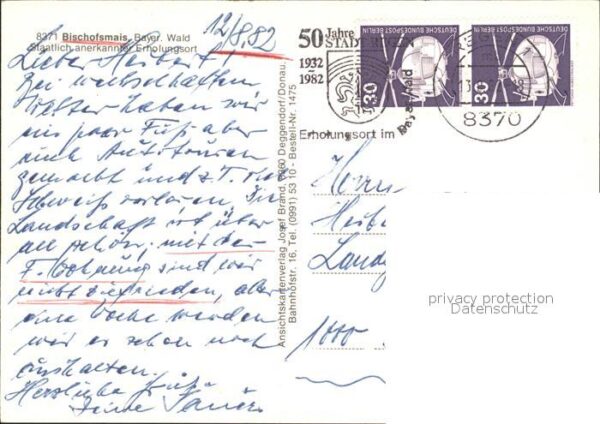 8371 Bischofsmais, Bayer. Wald
Staatlich anerkannter Erholungsort
12/8.82
Lieber Heribert!
Bei wechselhaften
Wetter haben wir
ein paar Fuß aber
auch Autotouren
gemacht und z.T. viel
Schweiß verloren. Die
Landschaft ist über
all schön, mit der
F. Wohnung sind wir
nicht zufrieden, aber
eine Woche werden
wir es schon noch
aushalten.
Herzliche Grüße
Deine
Ansichtskartenverlag Josef Brand, 8360 Deggendorf/Donau,
Bahnhofstr. 16, Tel. (0991) 53 10 - Bestell-Nr. 1475
50 Jahre
STADT
1932
1982
Erholungsort im
Bayer. Wald
8370
DEUTSCHE BUNDESPOST BERLIN
30
DEUTSCHE BUNDESPOST BERLIN
30
Herrn
Landg
1000
privacy protection
Datenschutz